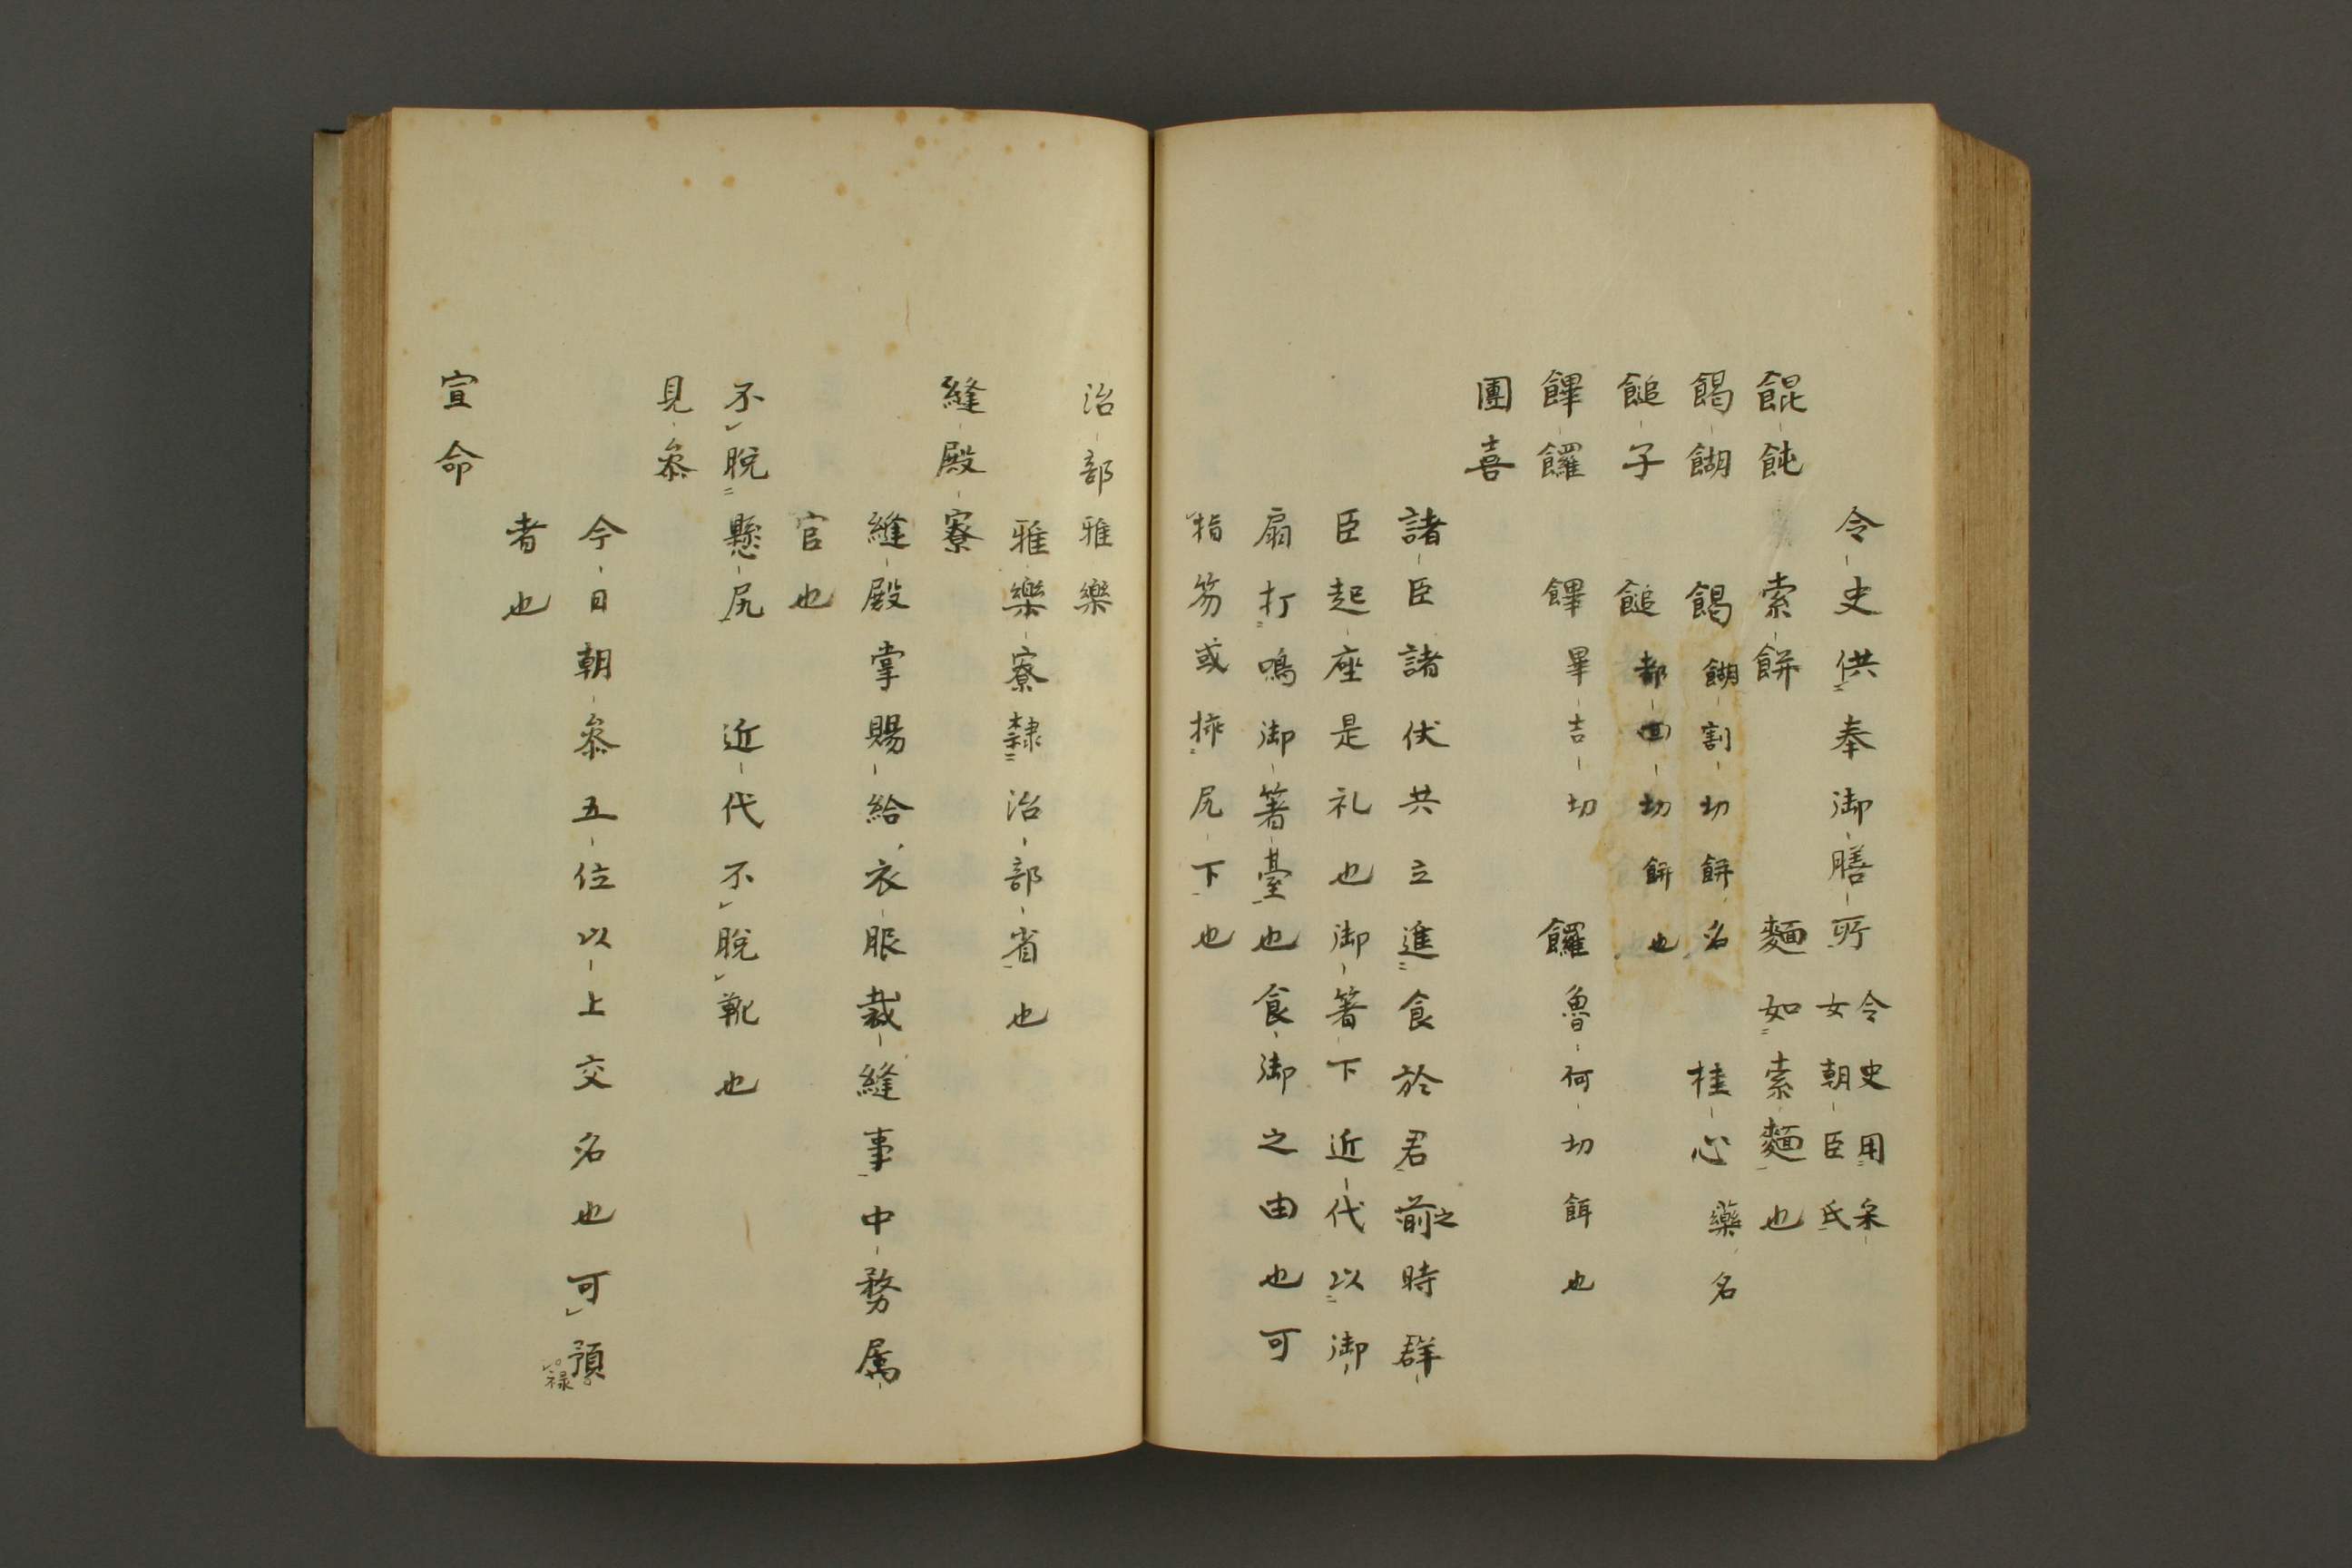 令史供奉御膳所 令史用采
女朝臣氏
餛飩 索餅 麵如索麵也
餲餬 餲餬割切餅名 桂心藥名
䭔子 䭔都回切餅也
饆饠 饆畢吉切 饠魯何切餌也
團喜
諸臣諸伏共立進食於君前之時群
臣起座是礼也御箸下近代以御
扇打鳴御箸臺也食御之由也可
指笏或 尻下也
治部雅樂
雅樂寮隷治部省也
縫殿寮
縫殿掌賜給衣服裁縫事中務属
官也
不脱懸尻 近代不脱靴也
見叅
今日朝叅五位以上交名也可預
禄
者也
宣命